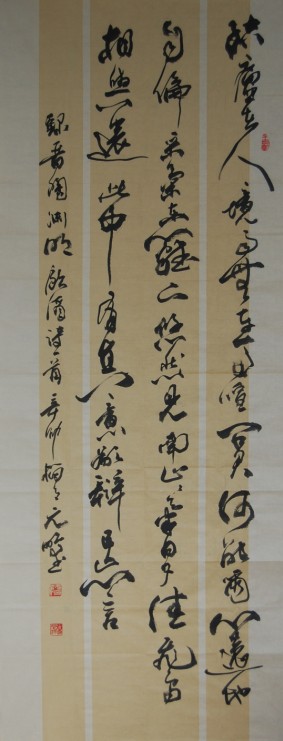 結廬在人境而無車馬喧問君何能爾心遠地
自偏采菊東籬下悠然見南山々氣日夕佳飛鳥
相與還此中有真意欲辯已忘言
録晋陶渊明飲酒詩一首辛卯元